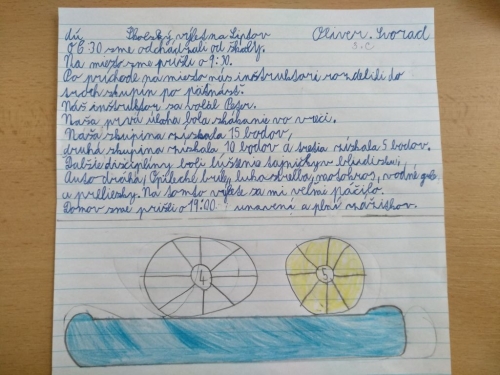 dú Školský výlet na Liptov Oliver Svorad
3.C
O 6:30 sme odchádzali od školy.
Na miesto sme prišli o 9:00.
Po príchode na miesto nás inštruktori rozdelili do
troch skupín po pätnásť.
Náš inštruktor sa volal Peter.
Naša prvá úloha bola skákanie vo vreci.
Naša skupina získala 15 bodov,
druhá skupina získala 10 bodov a tretia získala 5 bodov.
Ďalšie disciplíny boli lúštenie tajničky v bludisku,
Auto dráha, Opileché bicykle, lukostreľba, motokros, vodné gule
a prilezky. Na tomto výlete sa mi veľmi páčilo.
Domov sme prišli o 19:00 unavení a plní zážitkov.
4
5